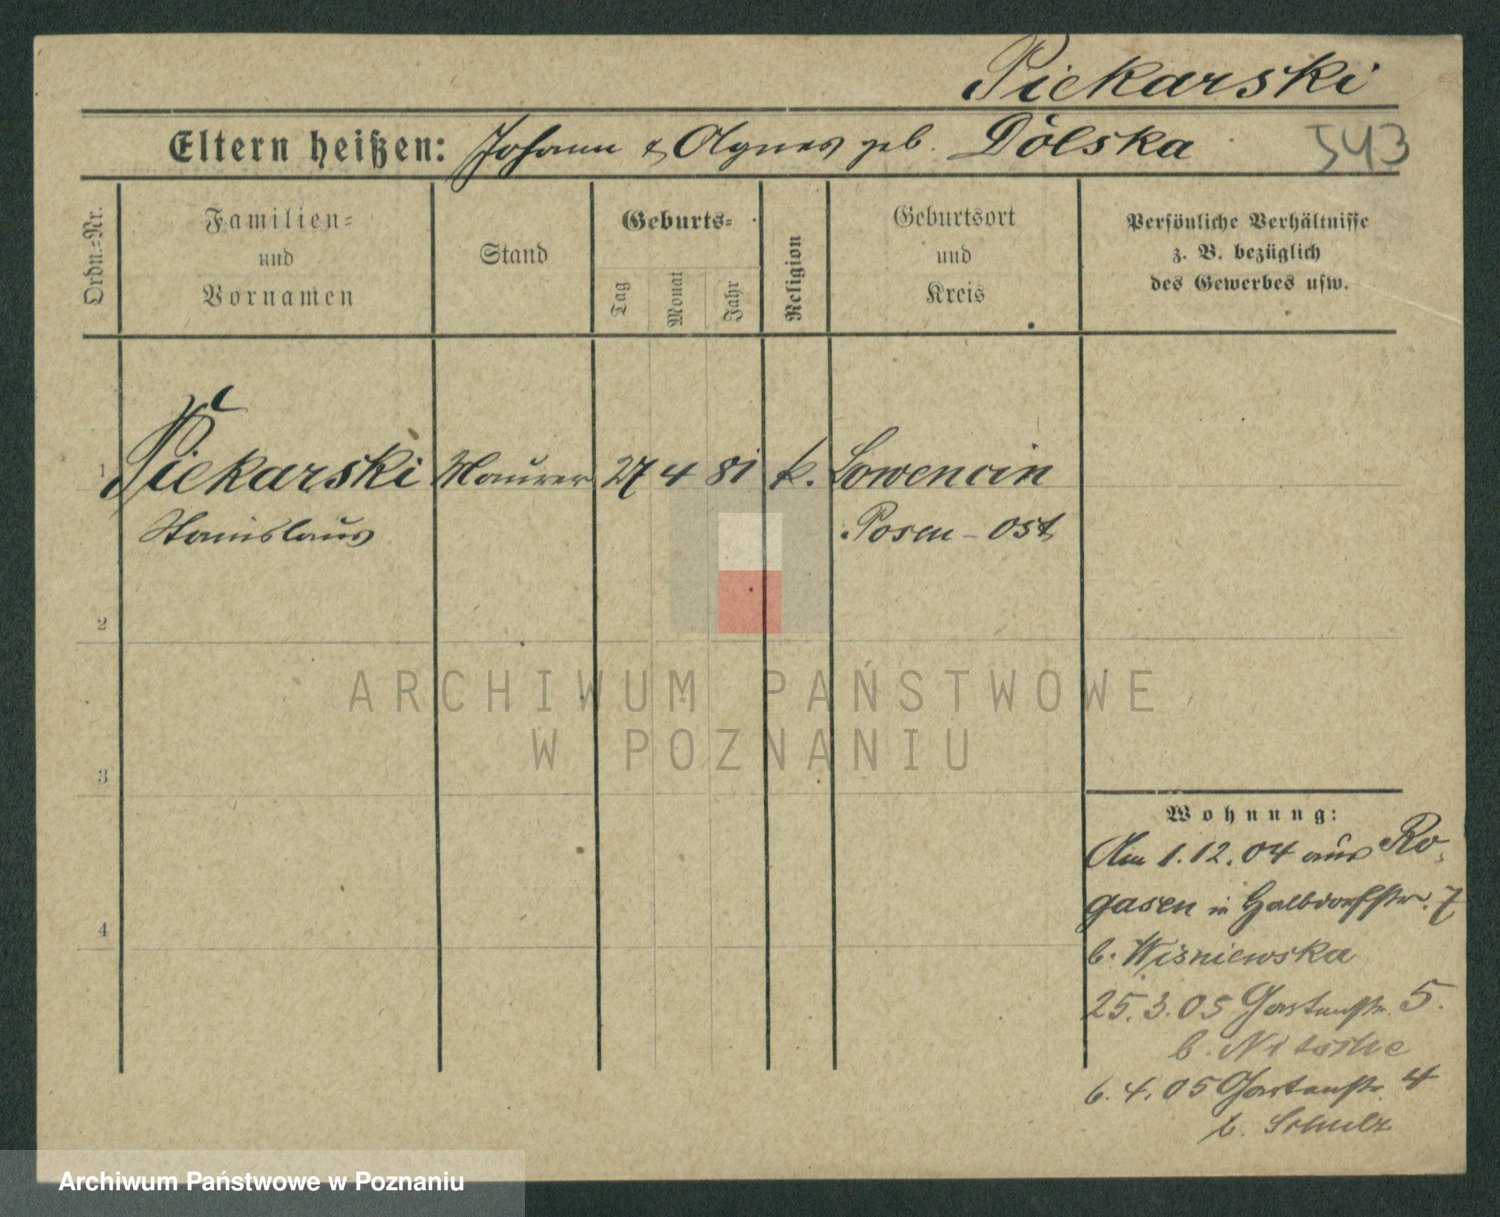 Piekarski
Eltern heißen: Johann & Agnes geb. Dolska
543
Ordn.=Nr.
Familien=
und
Vornamen
Stand
Geburts=
Tag
Monat
Jahr
Religion
Geburtsort
und
Kreis
Persönliche Verhältnisse
z. B. bezüglich
des Gewerbes usw.
1 Piekarski Maurer 27 4 81 k. Lowencin
Stanislaus Posen-Ost
2
3
4
Wohnung:
Am 1.12.04 aus Ro-
gasen in Halbdorfstr. 7
b. Wisniewska
25.3.05 Gartenstr. 5.
b. Nitsche
6.4.05 Gartenstr. 4
b. Schulz
ARCHIWUM PAŃSTWOWE
W POZNANIU
Archiwum Państwowe w Poznaniu